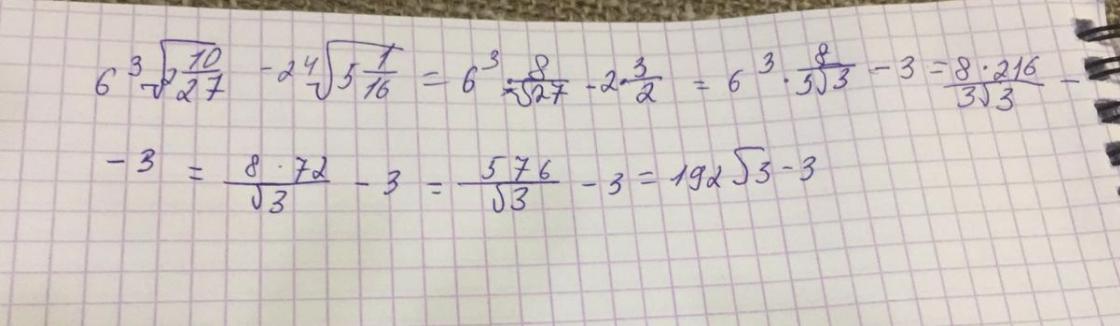 6³√2 10/27 - 2⁴√5 1/16 = 6³ · 8/√27 - 2 · 3/2 = 6³ · 8/3√3 - 3 = 8 · 216/3√3 -
- 3 = 8 · 72/√3 - 3 = 576/√3 - 3 = 192√3 - 3